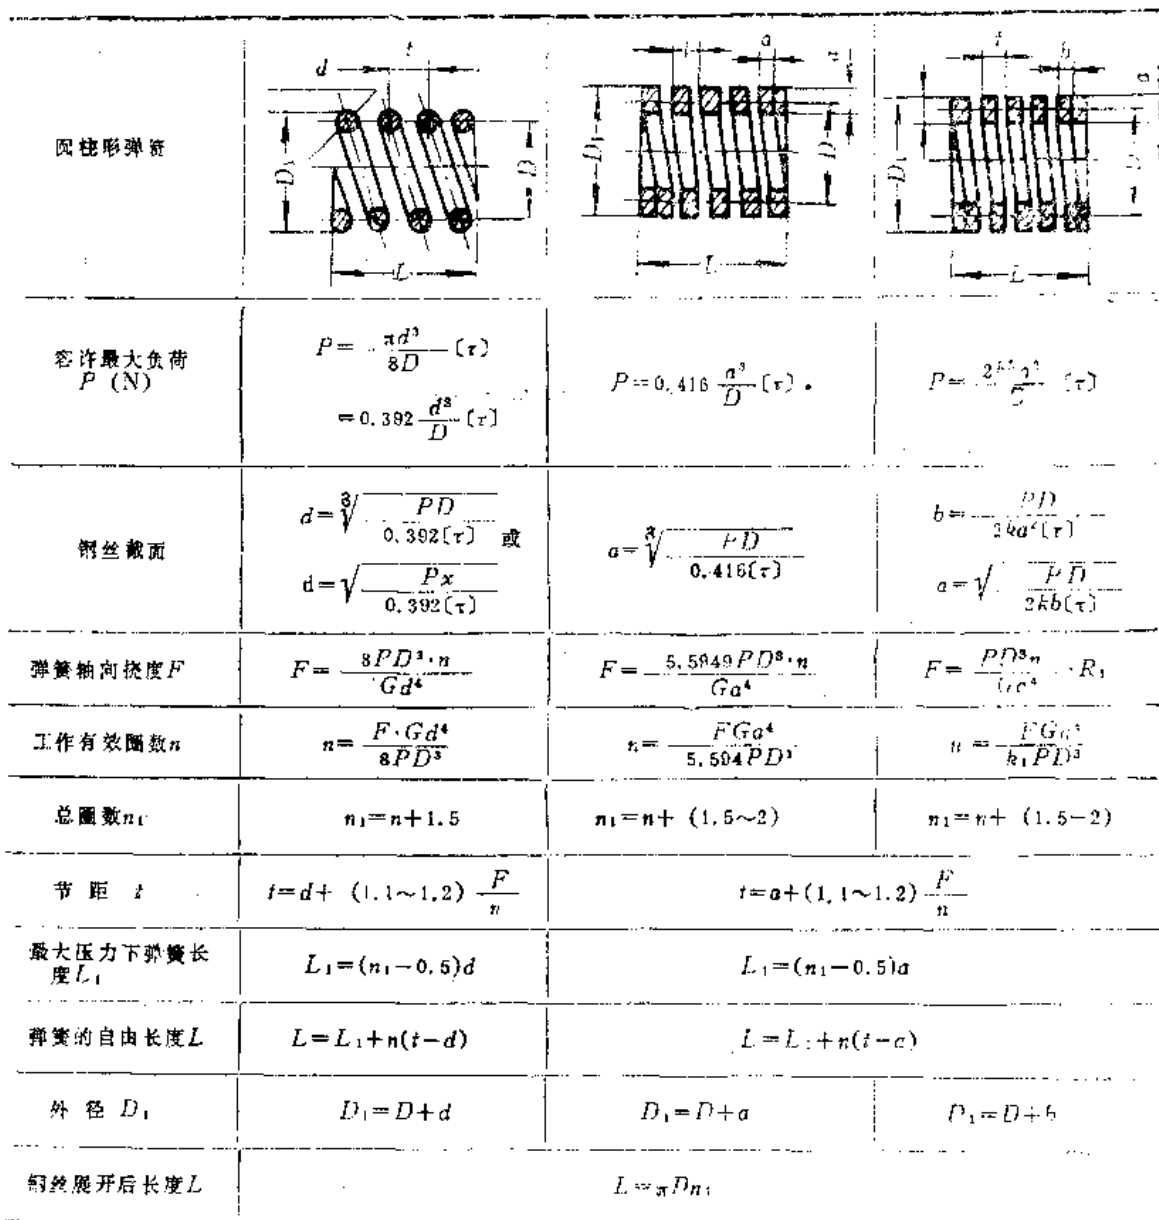 圆柱形弹簧
d t D₁ D L
t a a D₁ D L
t b a D₁ D L
容许最大负荷
P (N)
P= πd³/8D [τ]
=0.392 d³/D [τ]
P=0.416 a³/D [τ].
钢丝截面
d=∛(PD/0.392[τ]) 或
d=√(Px/0.392[τ])
a=∛(PD/0.416[τ])
b= PD/2ka²[τ]
a=√(PD/2kb[τ])
弹簧轴向挠度F
F= 8PD³·n/Gd⁴
F= 5.5949PD³·n/Ga⁴
工作有效圈数n
n= F·Gd⁴/8PD³
n= FGa⁴/5.594PD³
总圈数n₁
n₁=n+1.5
n₁=n+ (1.5~2)
n₁=n+ (1.5-2)
节 距 t
t=d+ (1.1~1.2) F/n
t=a+(1.1~1.2) F/n
最大压力下弹簧长
度L₁
L₁=(n₁-0.5)d
L₁=(n₁-0.5)a
弹簧的自由长度L
L=L₁+n(t-d)
外 径 D₁
D₁=D+d
D₁=D+a
D₁=D+b
钢丝展开后长度L
L=πDn₁